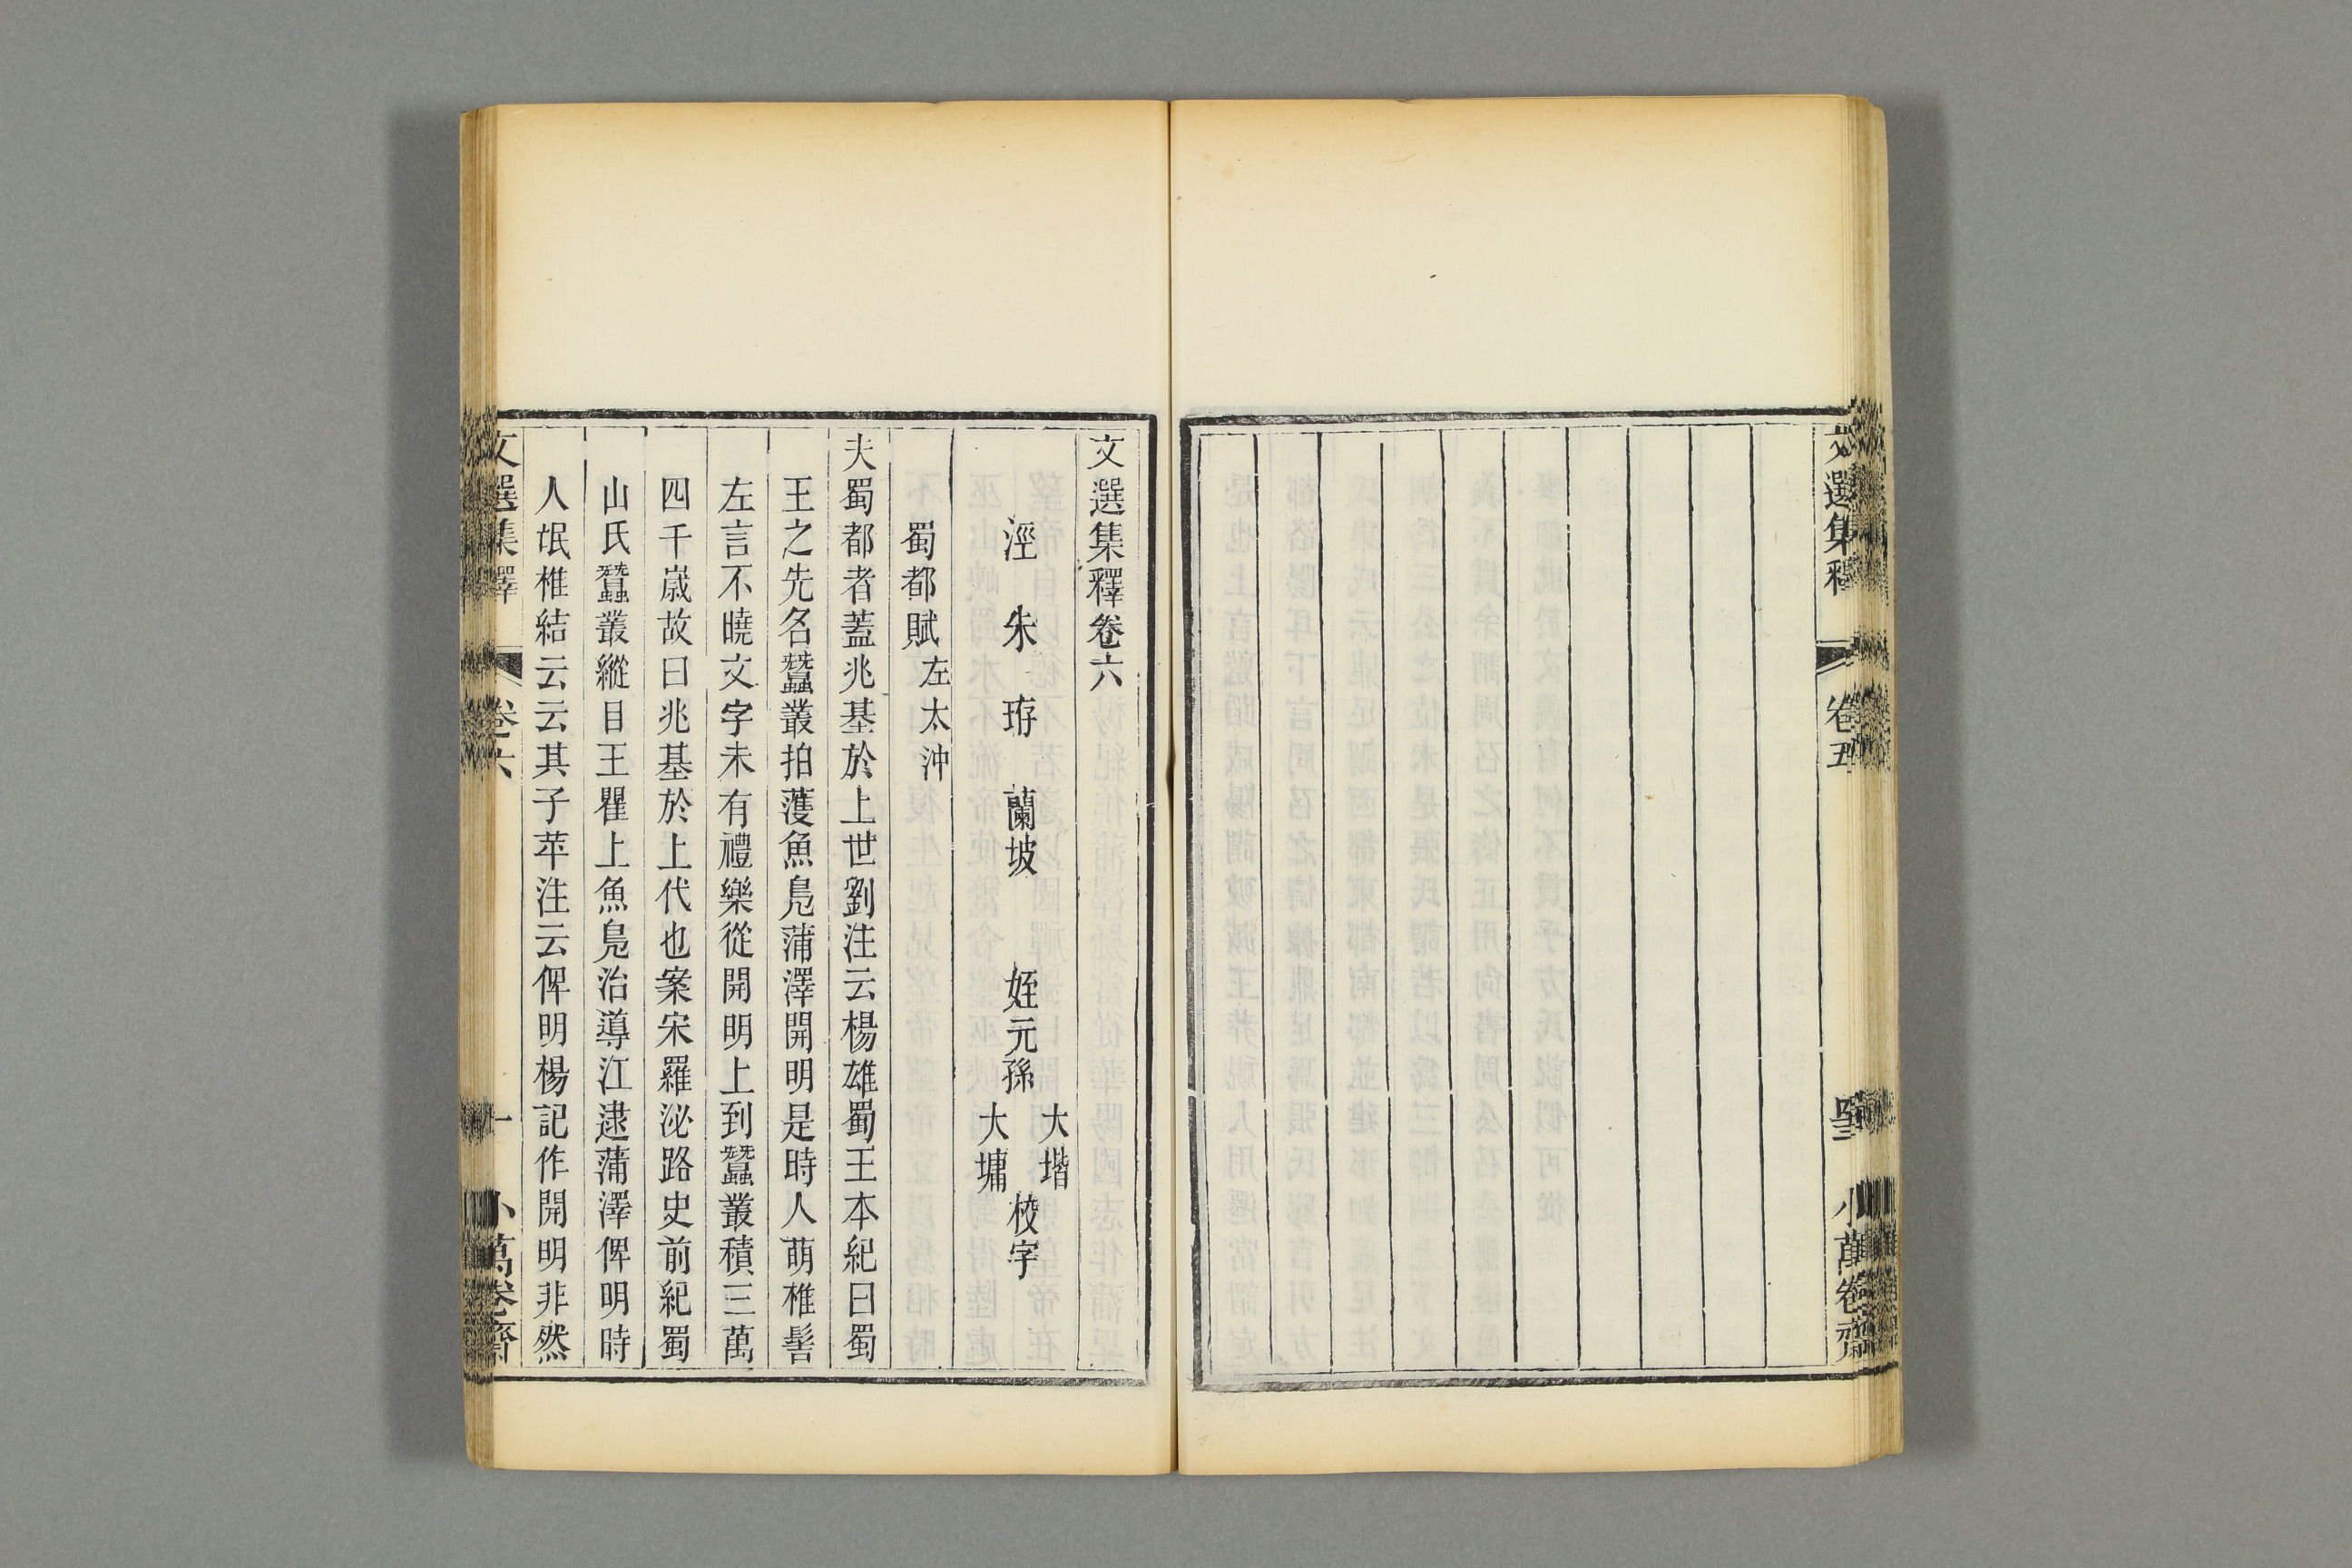 文選集釋 卷五 小萬卷齋
文選集釋卷六
涇 朱 珔 蘭坡 姪元孫 大堦 大墉 校字
蜀都賦 左太沖
夫蜀都者蓋兆基於上世劉注云楊雄蜀王本紀曰蜀
王之先名蠶叢拍蒦魚鳧蒲澤開明是時人萌椎髻
左言不曉文字未有禮樂從開明上到蠶叢積三萬
四千歲故曰兆基於上代也案宋羅泌路史前紀蜀
山氏蠶叢縱目王瞿上魚鳧治導江逮蒲澤俾明時
人氓椎結云云其子苹注云俾明楊記作開明非然
文選集釋 卷六 一 小萬卷齋